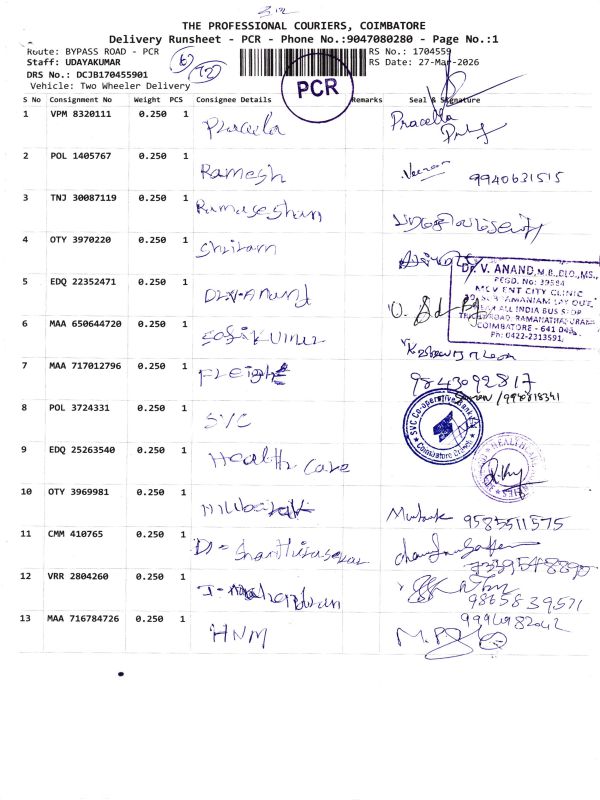 THE PROFESSIONAL COURIERS, COIMBATORE
Delivery Runsheet - PCR - Phone No.:9047080280 - Page No.:1
Route: BYPASS ROAD - PCR
RS No.: 1704559
Staff: UDAYAKUMAR
RS Date: 27-Mar-2026
DRS No.: DCJB170455901
PCR
Vehicle: Two Wheeler Delivery
S No Consignment No Weight PCS Consignee Details Remarks Seal & Signature
1 VPM 8320111 0.250 1 Pracella Pracella
2 POL 1405767 0.250 1 Ramesh 9940631515
3 TNJ 30087119 0.250 1
4 OTY 3970220 0.250 1 Shriram
5 EDQ 22352471 0.250 1 DR.V.Anand
Dr. V. ANAND, M.B., D.L.O., M.S.,
REGD. No: 39584
CITY CLINIC
COIMBATORE - 641 045
Ph: 0422-2313591
6 MAA 650644720 0.250 1
7 MAA 717012796 0.250 1 9843092817
8 POL 3724331 0.250 1 SVC
SVC Co-operative Bank
Coimbatore Branch
9 EDQ 25263540 0.250 1 Health Care
10 OTY 3969981 0.250 1 Mubarak 9585511575
11 CMM 410765 0.250 1
12 VRR 2804260 0.250 1 9865839571
13 MAA 716784726 0.250 1 HNM